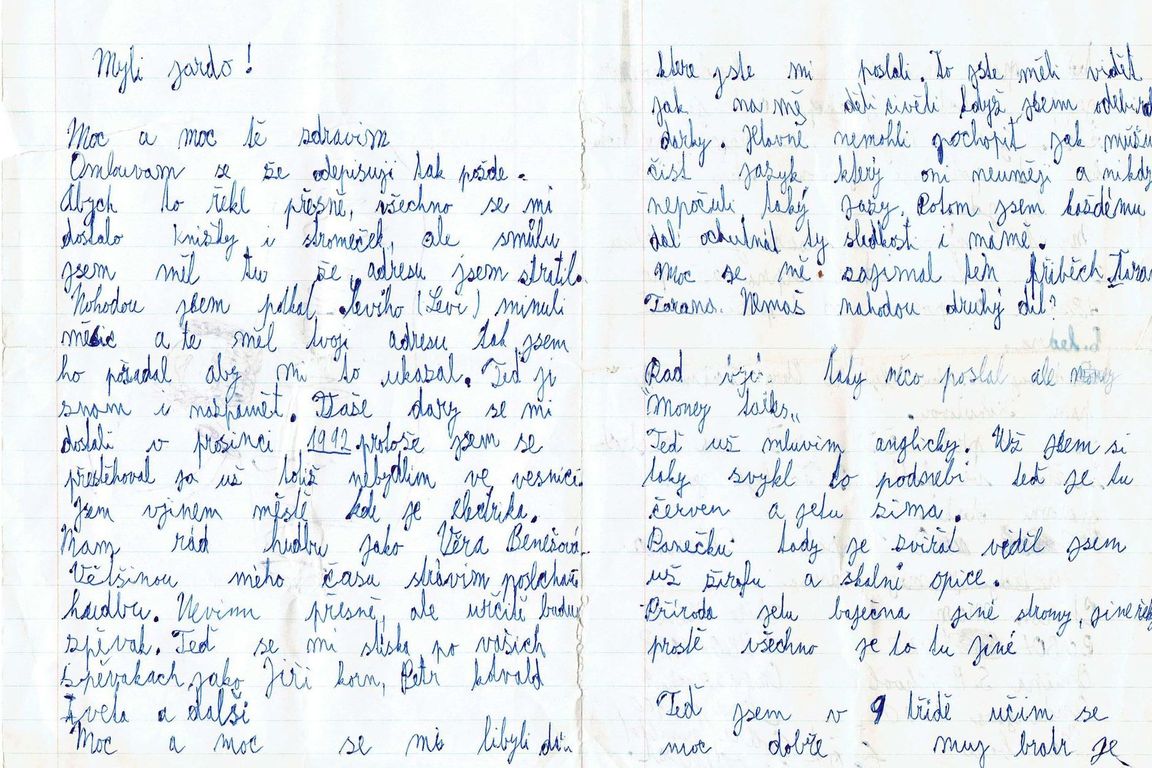 Myli jardo!
Moc a moc tě zdravim
Omlouvam se že odepisuji tak pozdě.
Abych to řekl přesně, všechno se mi
dostalo knižky i stromeček, ale smůlu
jsem měl tu že adresu jsem stratil.
Nohodou jsem potkal Leviho (Levi) minuli
měsic a te měl tvoji adresu tak jsem
ho požadal aby mi to ukazal. Teď ji
znam i naspamět. Vaše dary se mi
dostali v prosinci 1992 protože jsem se
přestěhoval ja už totiž nebydlim ve vesnici.
Jsem vjinem městě kde je electrika.
Mam rád hudbu jako Věra Benešová.
Většinou meho času strávim poslechem
haudbu. Nevim přesně, ale určitě budu
zpěvak. Teď se mi stiska po vašich
zpěvakach jako Jiří korn, Petr kotvald
Iveta a další
Moc a moc se mi libyli
ktere jste mi poslali. To jste měli vidět
jak na mě děti civěli když jsem odebiral
darky. Hlavně nemohli pochopit jak můžu
čist jazyk který oni neumějí a nikdy
nepočuli taký jazy. Potom jsem každému
dal ochutnat ty sladkosti i mámě.
Moc se mě zajimal ten příběch Taran
Tarans. Nemaš nahodou druhý dil?
Rad taky něco poslal ale
"Money talks"
Teď už mluvim anglicky. Už jsem si
taky zvykl to podnebi teď je tu
červen a jetu zima.
Panečku tady je zviřat viděl jsem
už žirafu a skalni opice.
Přiroda jetu baječna jiné stromy, jine řeky
prostě všechno je to tu jiné
Teď jsem v 9 třidě učim se
moc dobře muj bratr je